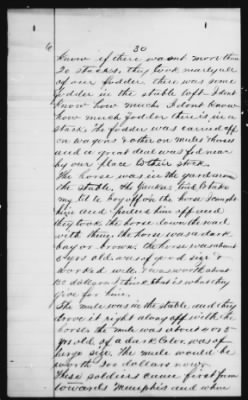 6
30
Know if there wasnt more than
20 stacks, they took nearly all
of our fodder there was some
fodder in the stable loft I dont
know how much I dont know
how much fodder there is in a
stack. The fodder was carried off
on wagons & other on mules & horses
and a great deal was fed near
by our place to their stock.
The horse was in the yard or in
the stable, the Yankees tried to take
my little boy off on the horse
him and
they took the horse down the road
with them. the horse was a dark
bay or brown. the horse was about
6 years old. was of good size &
worked well. I was worth about
150 dollars I think that is what they
give for him.
The mule was in the stable, and they
drove it right along off with the
horse. the mule was about 4 or 5
yrs old of a dark color, was of
large size, The mule would be
worth 150 dollars now.
These soldiers came first from
towards Memphis and when